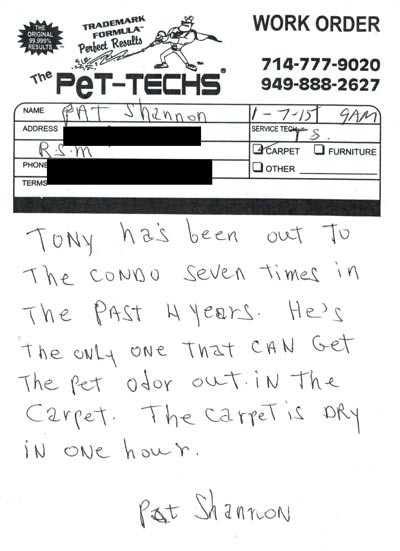 THE ORIGINAL 99.999% RESULTS
TRADEMARK FORMULA
Perfect Results
The Pet-Techs
WORK ORDER
714-777-9020
949-888-2627
NAME PAT Shannon 1-7-15 9AM
ADDRESS SERVICE TECH T S.
R.S.M CARPET FURNITURE
PHONE OTHER
TERMS
TONY has been out to
The CONDO seven times in
The PAST 4 years. He's
the only one that CAN Get
The pet odor out in The
Carpet. The carpet is DRY
in one hour.
Pat Shannon